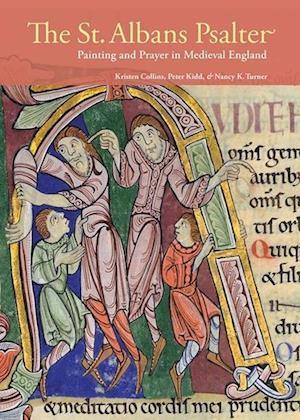 The St. Albans Psalter
Painting and Prayer in Medieval England
Kristen Collins, Peter Kidd, & Nancy K. Turner
UDITE
om̄s gen
aurib
tis orb
Quiq
&meditatio cordis mei prudent